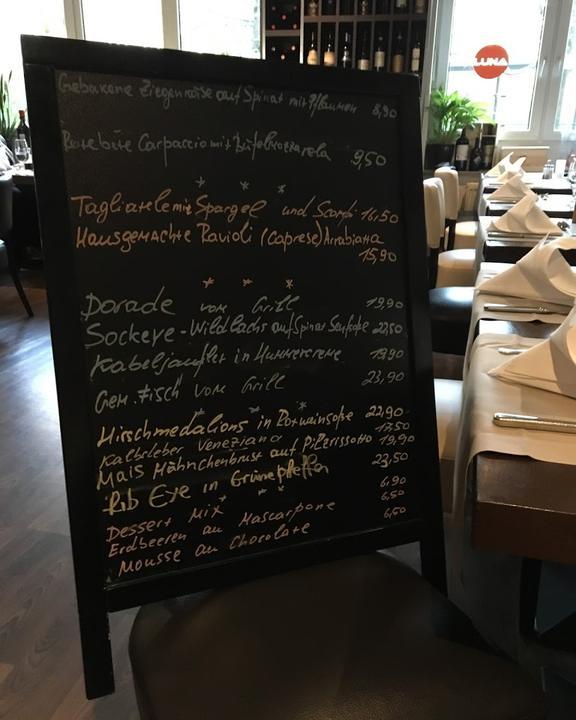 LUNA
Gebakene Ziegenkäse auf Spinat mit Pflaumen 8,90
Rote bite Carpaccio mit Büfelmozzarela 9,50
* * *
Tagliatele mit Spargel und Scampi 16,50
Hausgemachte Ravioli (Caprese) Arrabiata
15,90
* * *
Dorade vom Grill 19,90
Sockeye-Wildlachs auf Spinat Senfsoße 22,50
Kabeljaufilet in Hummercreme 19,90
Gem. Fisch vom Grill 23,90
* * *
Hirschmedalions in Rotweinsoße 22,90
Kalbsleber Veneziana 17,50
Mais Hähnchenbrust auf Pilzrissotto 19,90
Rib Eye in Grünepfeffa 23,50
* * *
Dessert Mix 6,90
Erdbeeren au Mascarpone 6,50
Mousse au Chocolate 6,50